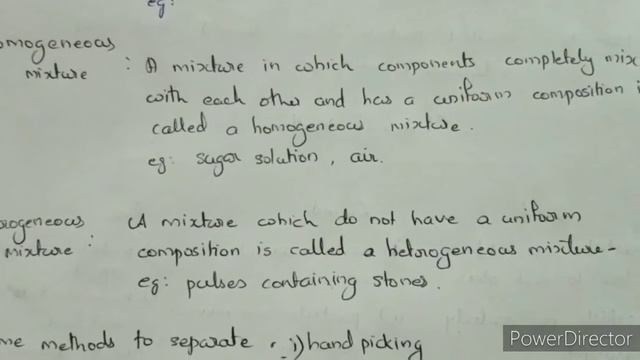 eg:
omogeneous : A mixture in which components completely mix
mixture with each other and has a uniform composition i
called a homogeneous mixture.
eg: sugar solution, air.
rogeneous A mixture which do not have a uniform
mixture : composition is called a heterogeneous mixture-
eg: pulses containing stones.
me methods to separate : i) hand picking
PowerDirector